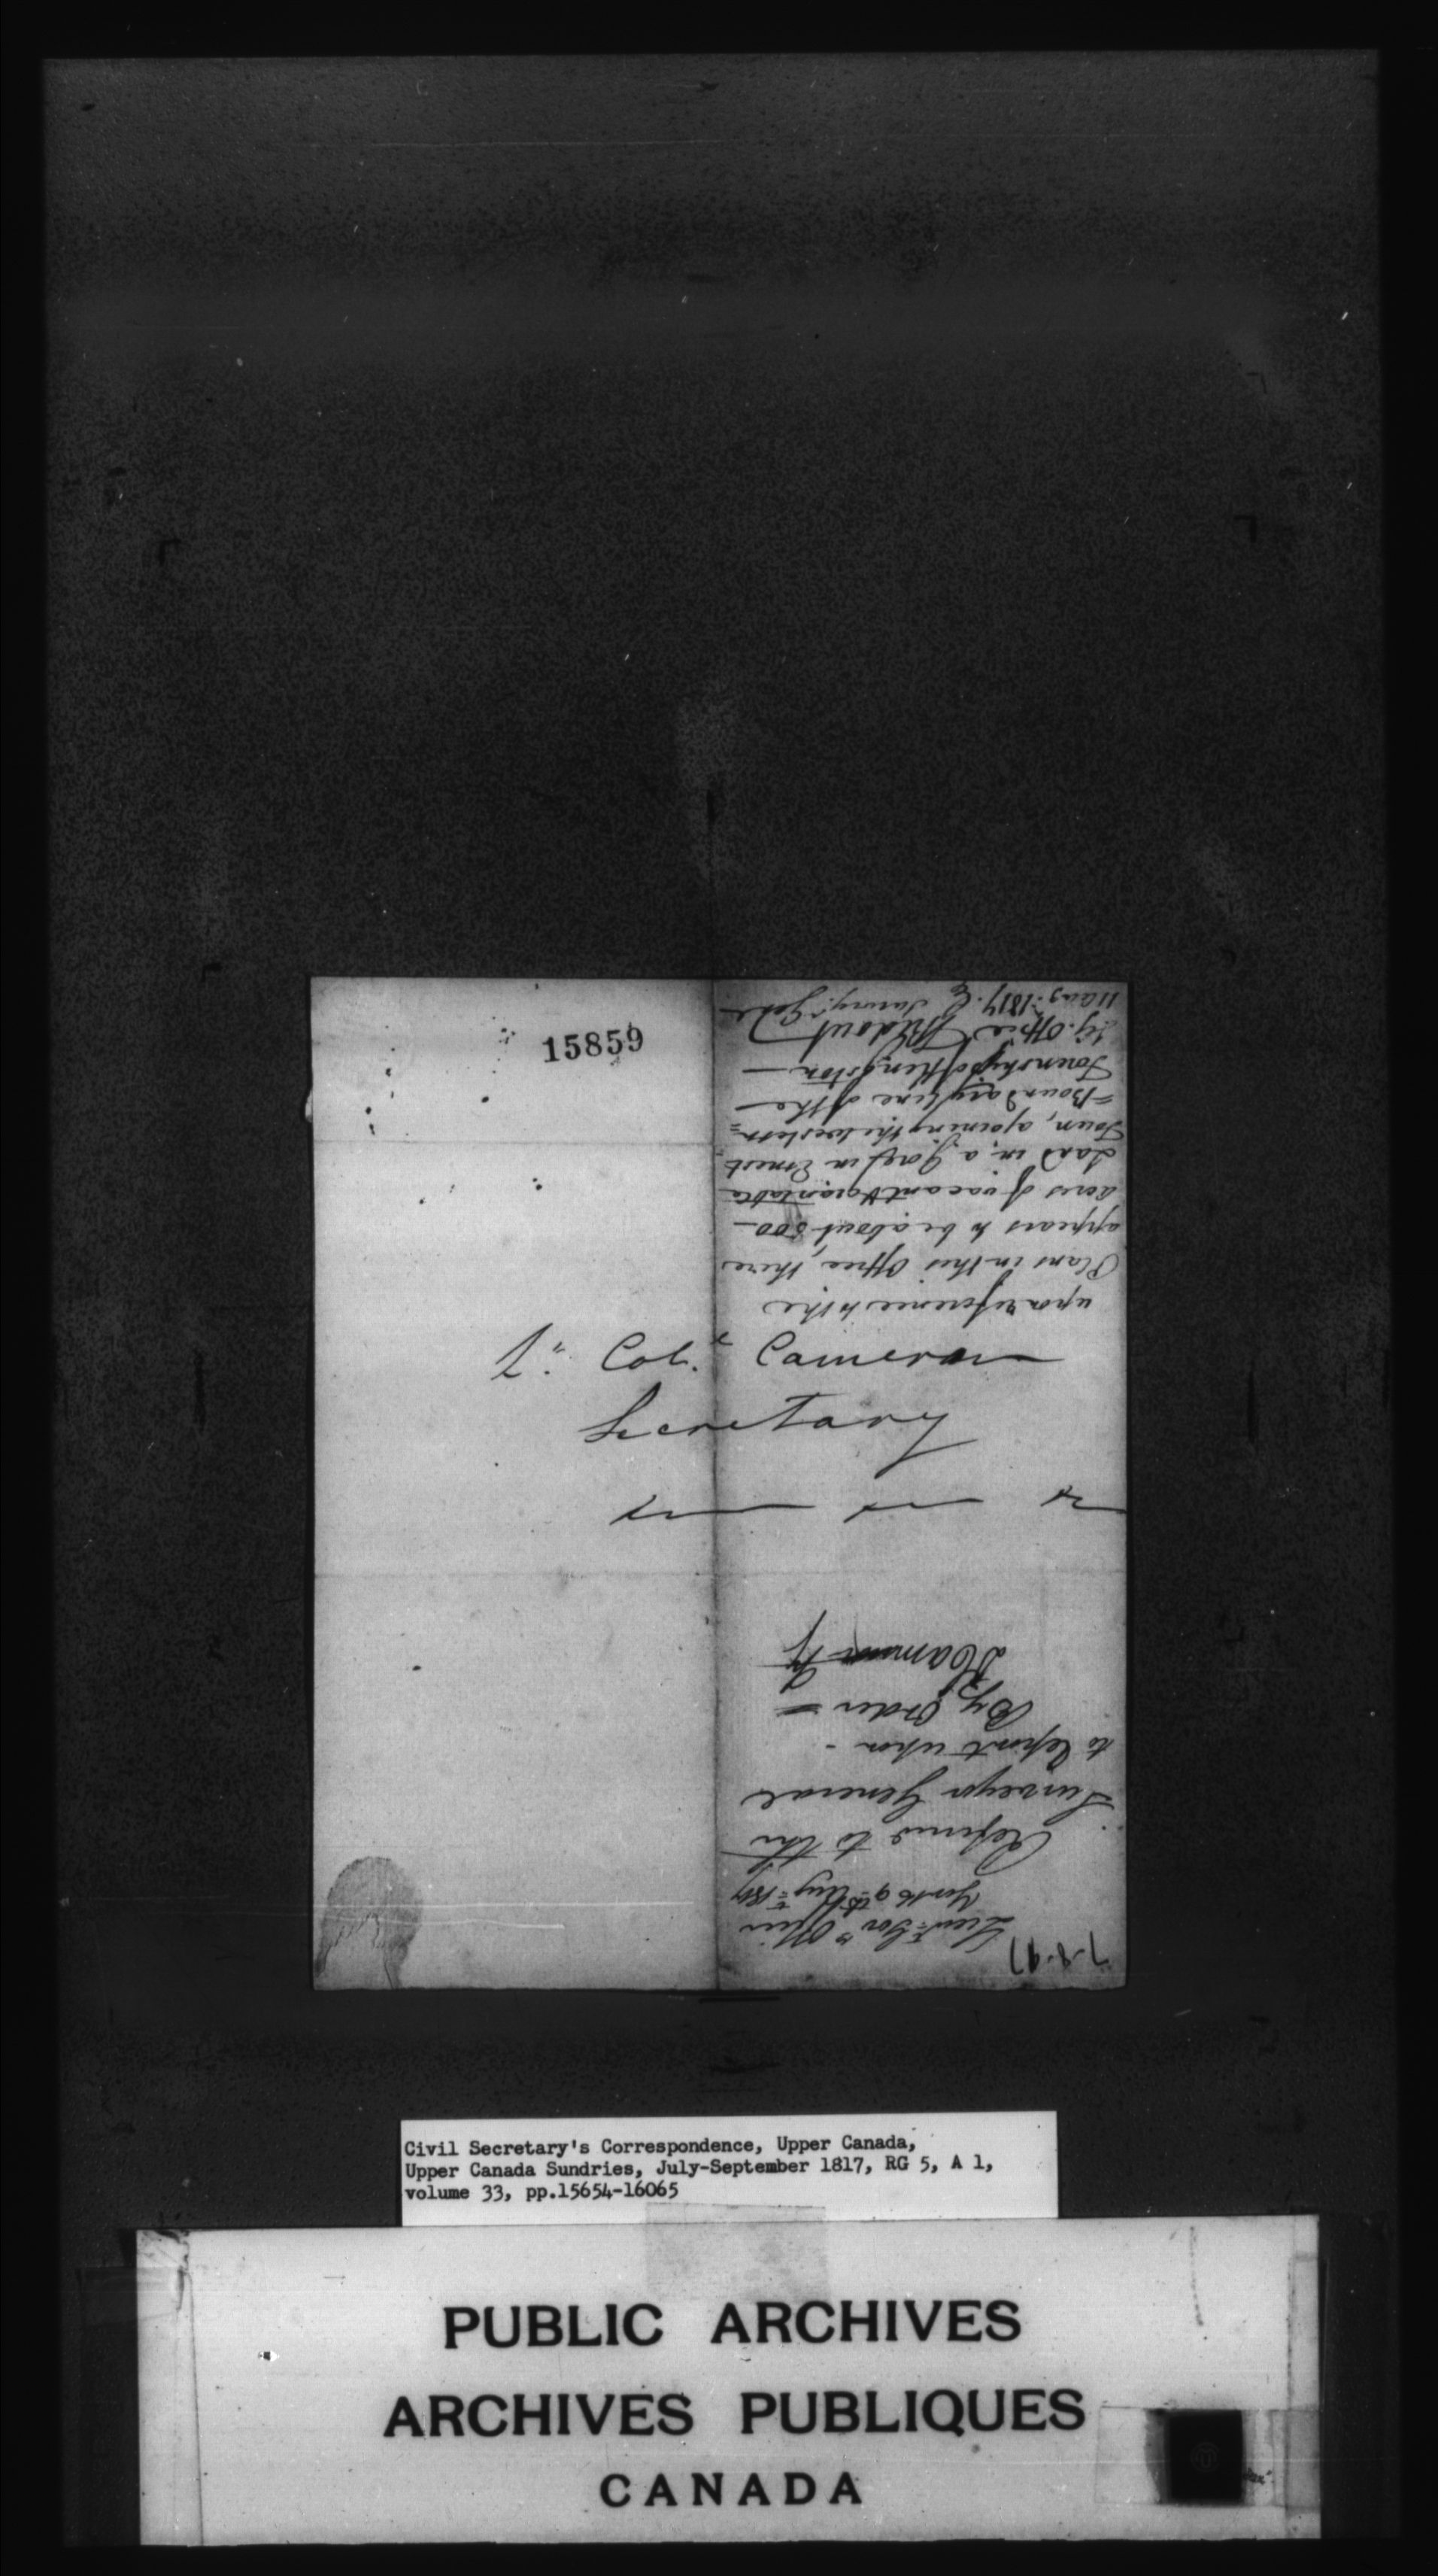 15859
Lt. Col. Cameron
Secretary
7-8-97
Lieut. Govrs Office
York 9th Augt 1817
Referred to the
Surveyor General
to Report upon -
By Order
upon reference to the
Plans in this Office, there
appears to be about 500
acres of vacant & grantable
Land in a Gore in Ernest
Town, ajoining the western
=Boundary line of the
Township of Kingston
S. G. Office Ridout
11 Aug: 1817. Survr. Genl.
Civil Secretary's Correspondence, Upper Canada,
Upper Canada Sundries, July-September 1817, RG 5, A 1,
volume 33, pp.15654-16065
PUBLIC ARCHIVES
ARCHIVES PUBLIQUES
CANADA